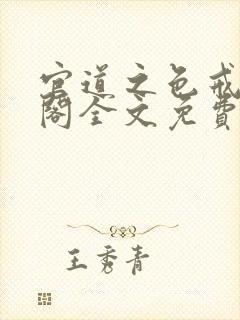 官道之色戒
阁全文免費
王秀青